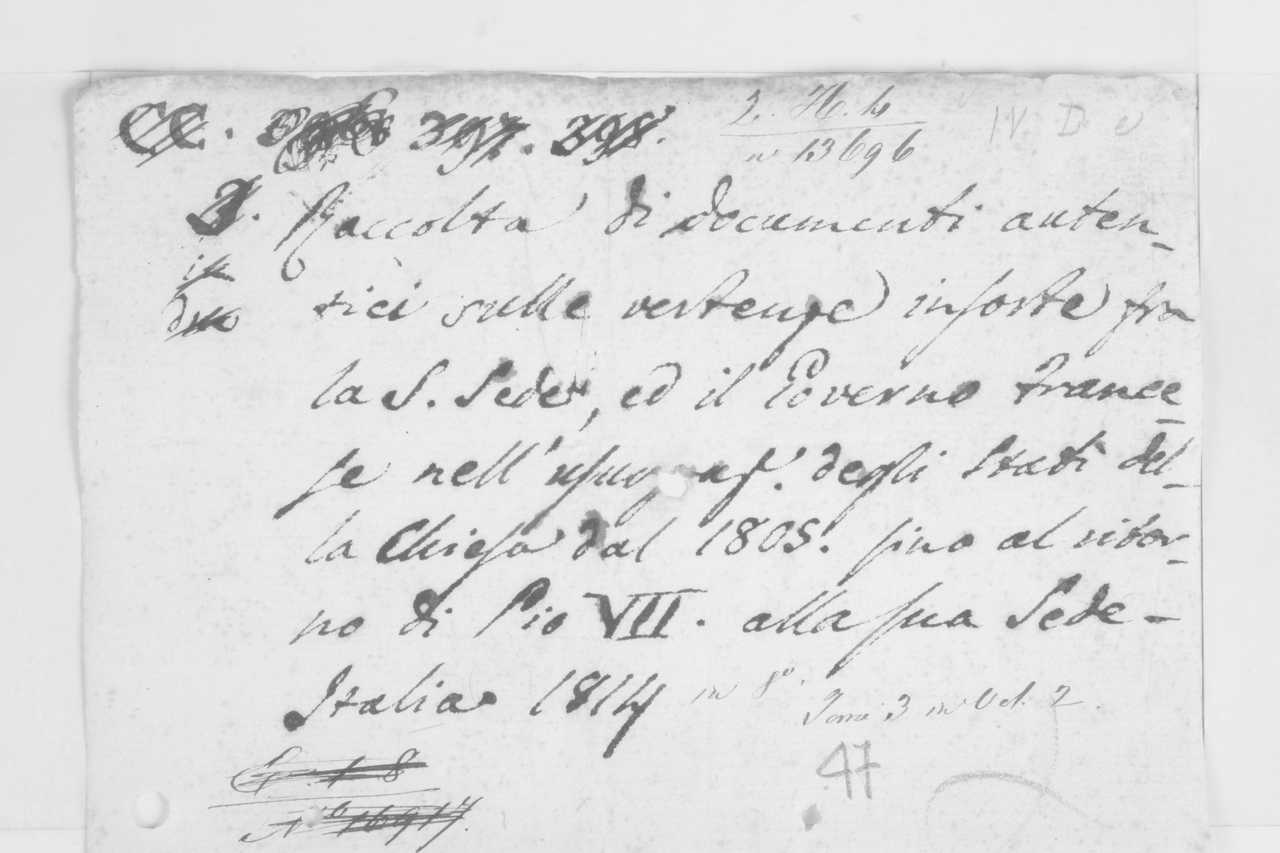 CC. 397. 398.
2. H. b
n° 13696
IV D
Raccolta di documenti auten-
tici sulle vertenze insorte fra
la S. Sede, ed il Governo France=
se nell' degli Stati del-
la Chiesa dal 1805. sino al ritor-
no di Pio VII. alla sua Sede -
Italia 1814 in 8°. Tomi 3 in Vol. 2.
47
N° 16917